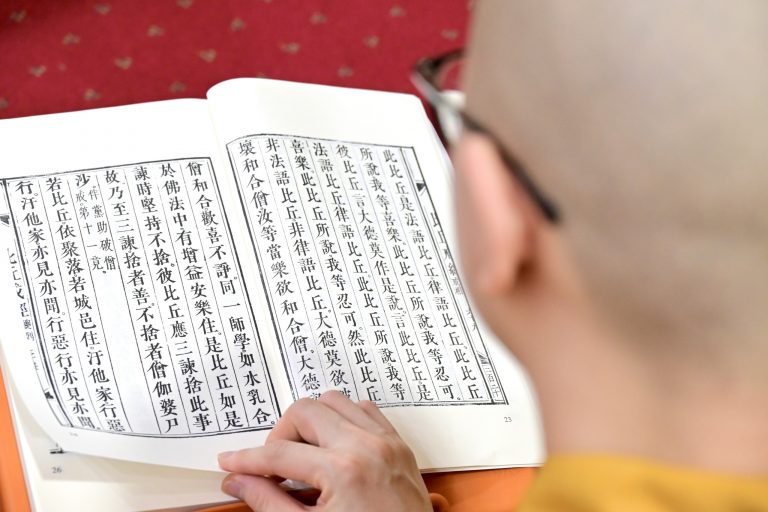 此比丘是法語比丘律語比丘此比丘
所說我等喜樂.此比丘所說我等忍可.
彼比丘言.大德莫作是說.言此比丘是
法語比丘律語比丘.此比丘所說我等
喜樂.此比丘所說我等忍可.然此比丘
非法語比丘.非律語比丘.大德莫欲破
壞和合僧.汝等當樂欲和合僧.大德
23
僧和合歡喜不諍.同一師學.如水乳合.
於佛法中有增益安樂住.是比丘如是
諫時.堅持不捨.彼比丘應三諫捨此事
故.乃至三諫捨者善.不捨者.僧伽婆尸
沙.伴黨助破僧戒第十一竟
若比丘依聚落若城邑住.汙他家行惡
行.汙他家亦見亦聞.行惡行亦見亦聞.
26